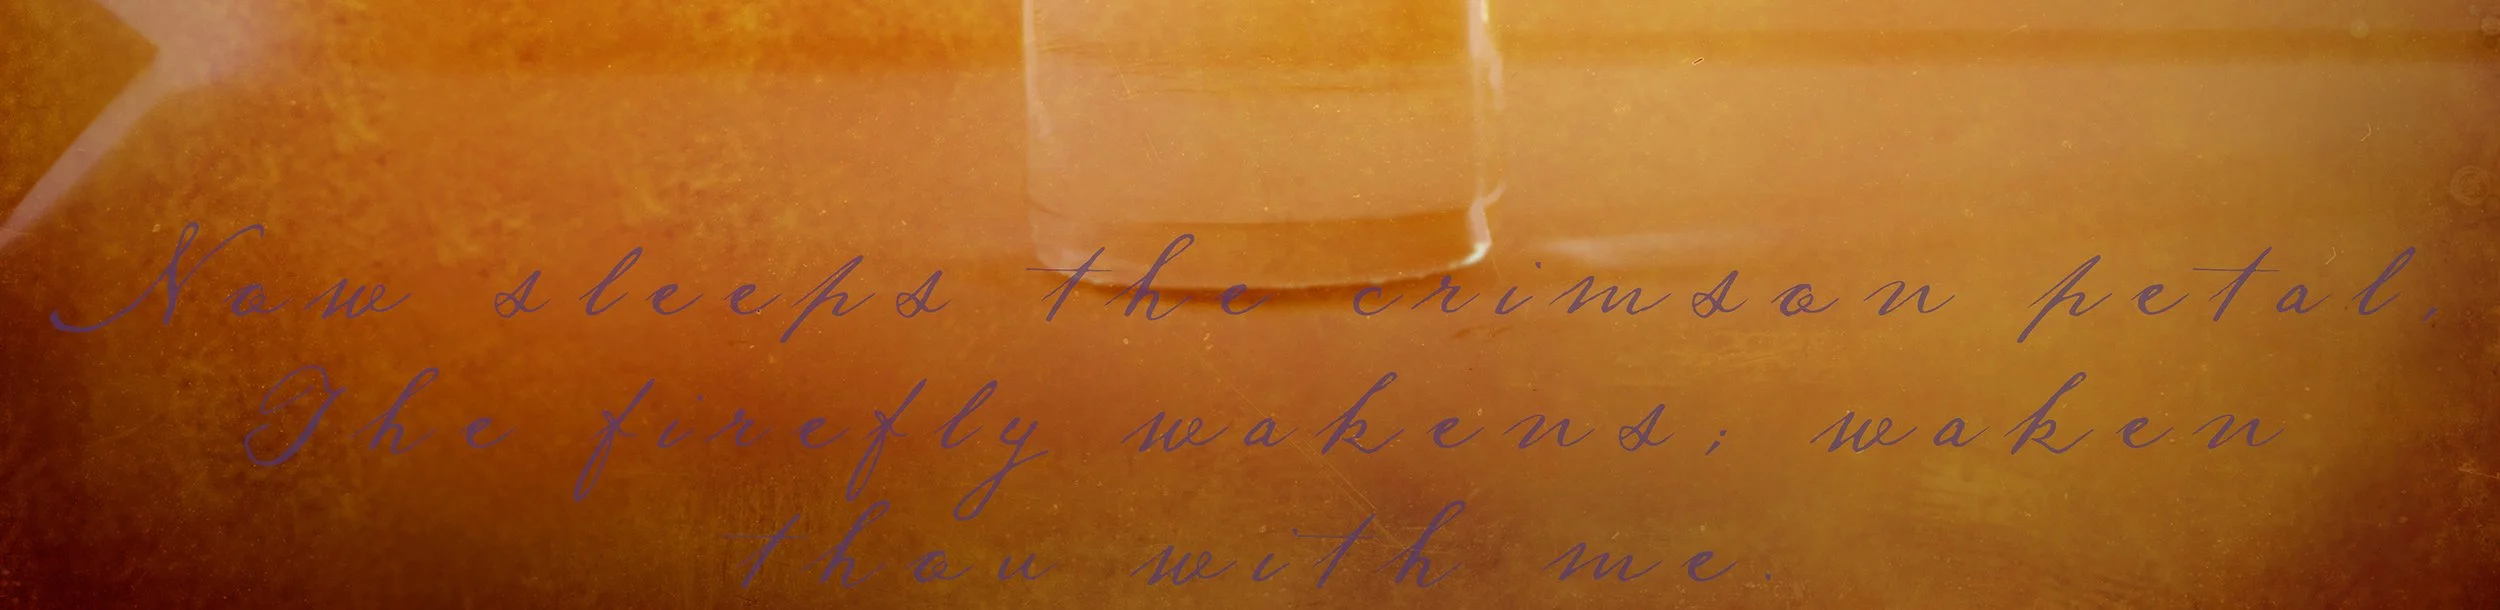 Now sleeps the crimson petal,
The firefly wakens; waken
thou with me.